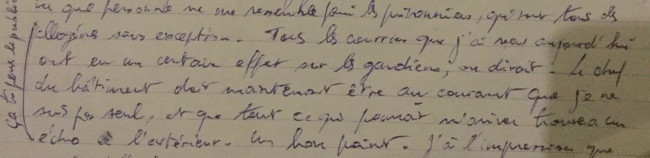 que personne ne me ressemble parmi les prisonniers, qui sont tous des
allogènes sans exception. Tous les courriers que j'ai reçu aujourd'hui
ont eu un certain effet sur les gardiens, on dirait. Le chef
du bâtiment doit maintenant être au courant que je ne
suis pas seul, et que tout ce qui pourrait m'arriver trouvera un
écho à l'extérieur. Un bon point. J'ai l'impression que
Ça c'est pour le public